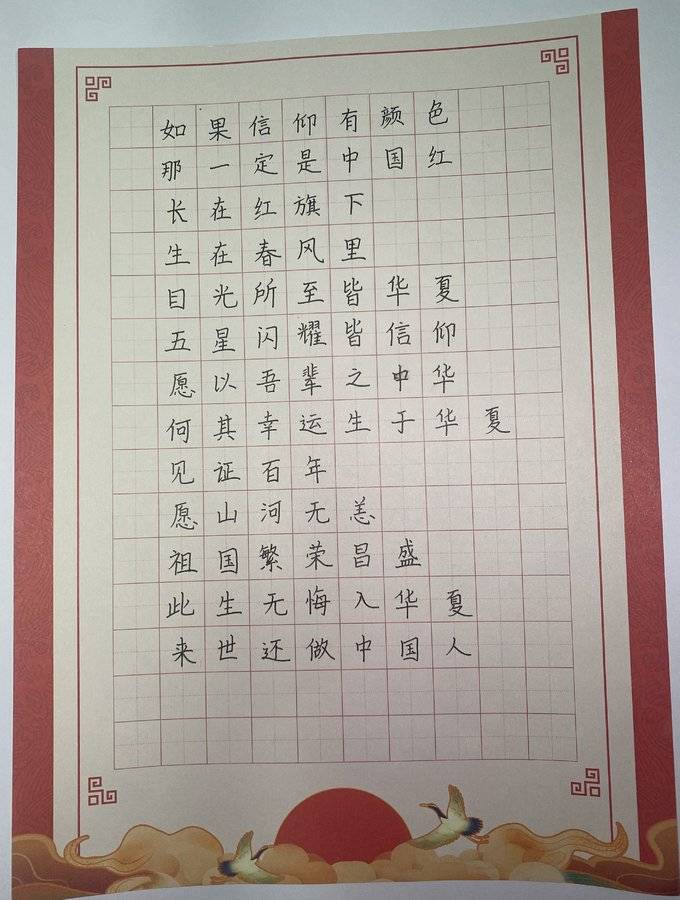 如果信仰有颜色
那一定是中国红
长在红旗下
生在春风里
目光所至皆华夏
五星闪耀皆信仰
愿以吾辈之中华
何其幸运生于华夏
见证百年
愿山河无恙
祖国繁荣昌盛
此生无悔入华夏
来世还做中国人